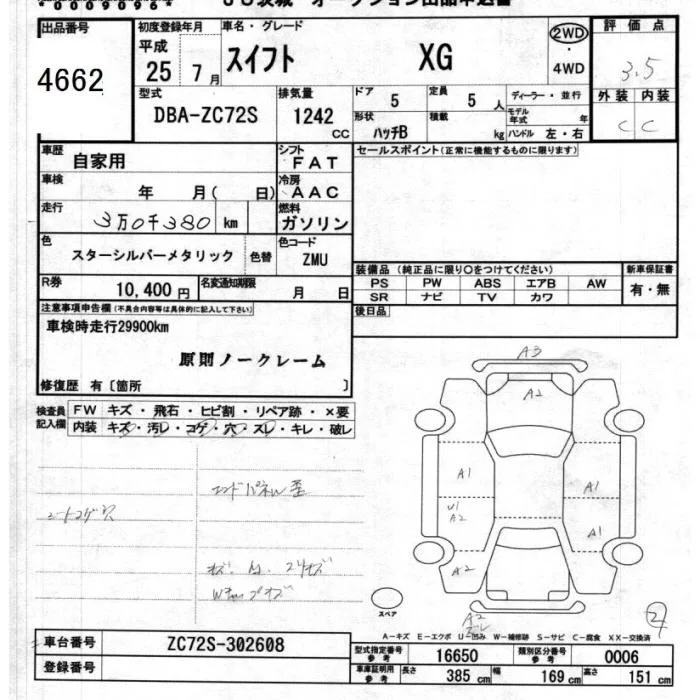 出品番号
4662
初度登録年月
平成
25 年 7 月
車名・グレード
スイフト XG
2WD
・
4WD
評価点
3.5
外装 内装
C C
型式
DBA-ZC72S
排気量
1242
CC
ドア
5
定員
5 人
形状
ハッチB
積載
kg
ディーラー・並行
モデル年式 年
ハンドル 左・右
車歴
自家用
シフト
FAT
車検
年 月( 日)
冷房
AAC
走行
3万0千380 km
燃料
ガソリン
色
スターシルバーメタリック
色替
色コード
ZMU
R券
10,400 円
名変通知期限
月 日
セールスポイント(正常に機能するものに限ります)
装備品 (純正品に限り○をつけてください)
PS PW ABS エアB AW
SR ナビ TV カワ
新車保証書
有・無
後日品
注意事項申告欄(不具合内容等は具体的に記入して下さい)
車検時走行29900km
原則ノークレーム
修復歴 有〔箇所 〕
検査員記入欄
FW キズ・飛石・ヒビ割・リペア跡・×要
内装 キズ・汚レ・コゲ・穴・スレ・キレ・破レ
シートコゲ穴
エンドパネル歪
A3
A2
A1
A1
U1
A2
A1
A2
A2
スペア
2
A−キズ E−エクボ U−凹み W−補修跡 S−サビ C−腐食 XX−交換済
車台番号
ZC72S-302608
登録番号
型式指定番号
参考
16650
類別区分番号
参考
0006
車庫証明用
参考
長さ 385 cm 幅 169 cm 高さ 151 cm